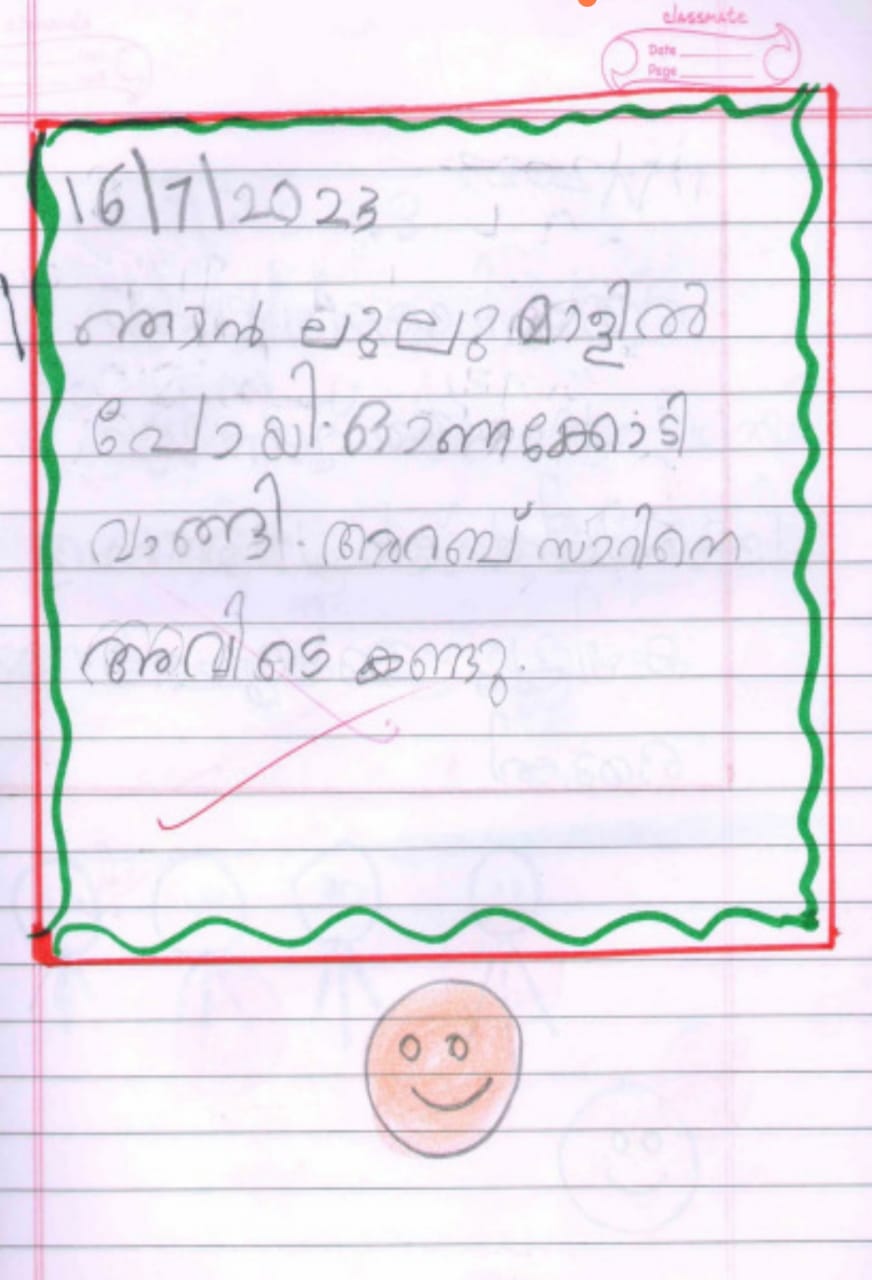 classmate
Date
Page
16/7/2023
ഞാൻ ലുലു മാളിൽ
പോയി. ഓണക്കോടി
വാങ്ങി. അറബ് സാറിനെ
അവിടെ കണ്ടു.